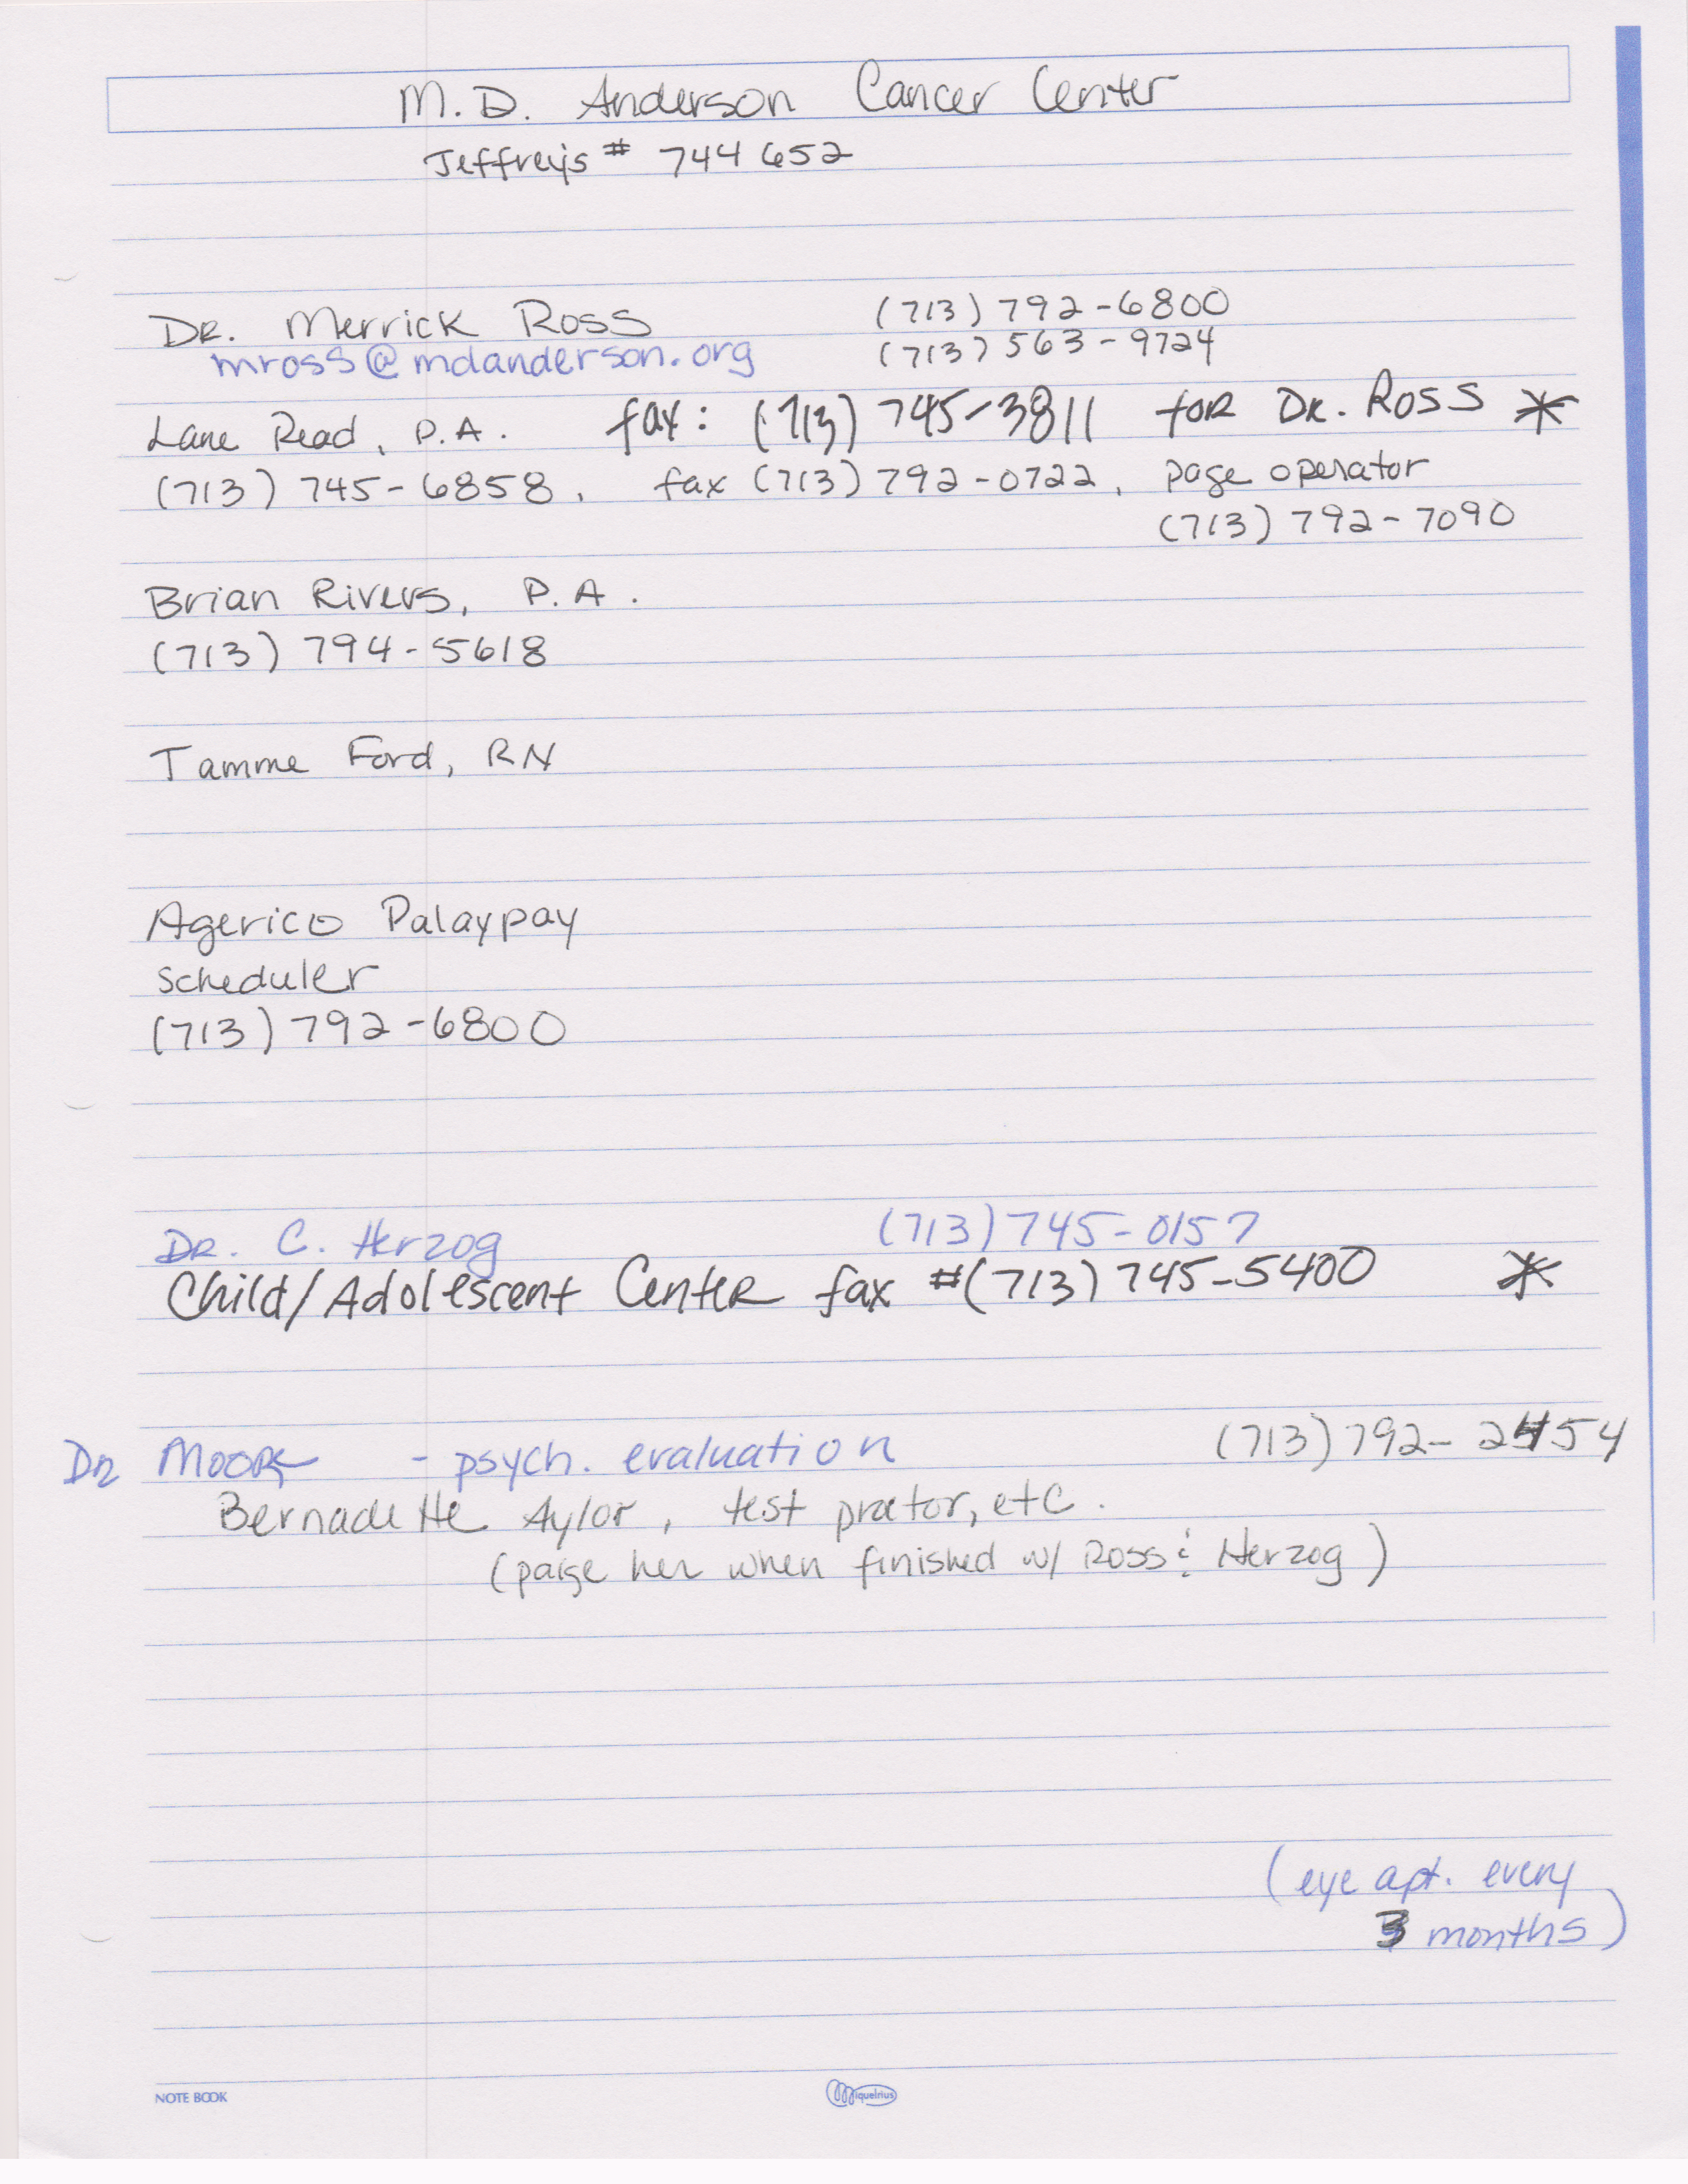 M.D. Anderson Cancer Center
Jeffrey's # 744652
Dr. Merrick Ross (713) 792-6800
mross@mdanderson.org (713) 563-9724
Lane Read, P.A. fax: (713) 745-3811 for Dr. Ross *
(713) 745-6858, fax (713) 792-0722, page operator
(713) 792-7090
Brian Rivers, P.A.
(713) 794-5618
Tamme Ford, RN
Agerico Palaypay
scheduler
(713) 792-6800
Dr. C. Herzog (713) 745-0157
Child/Adolescent Center fax #(713) 745-5400 *
Dr Moore - psych. evaluation (713) 792-2454
Bernadette Aylor, test proctor, etc.
(page her when finished w/ Ross & Herzog)
(eye apt. every
3 months)
NOTE BOOK Miquelrius